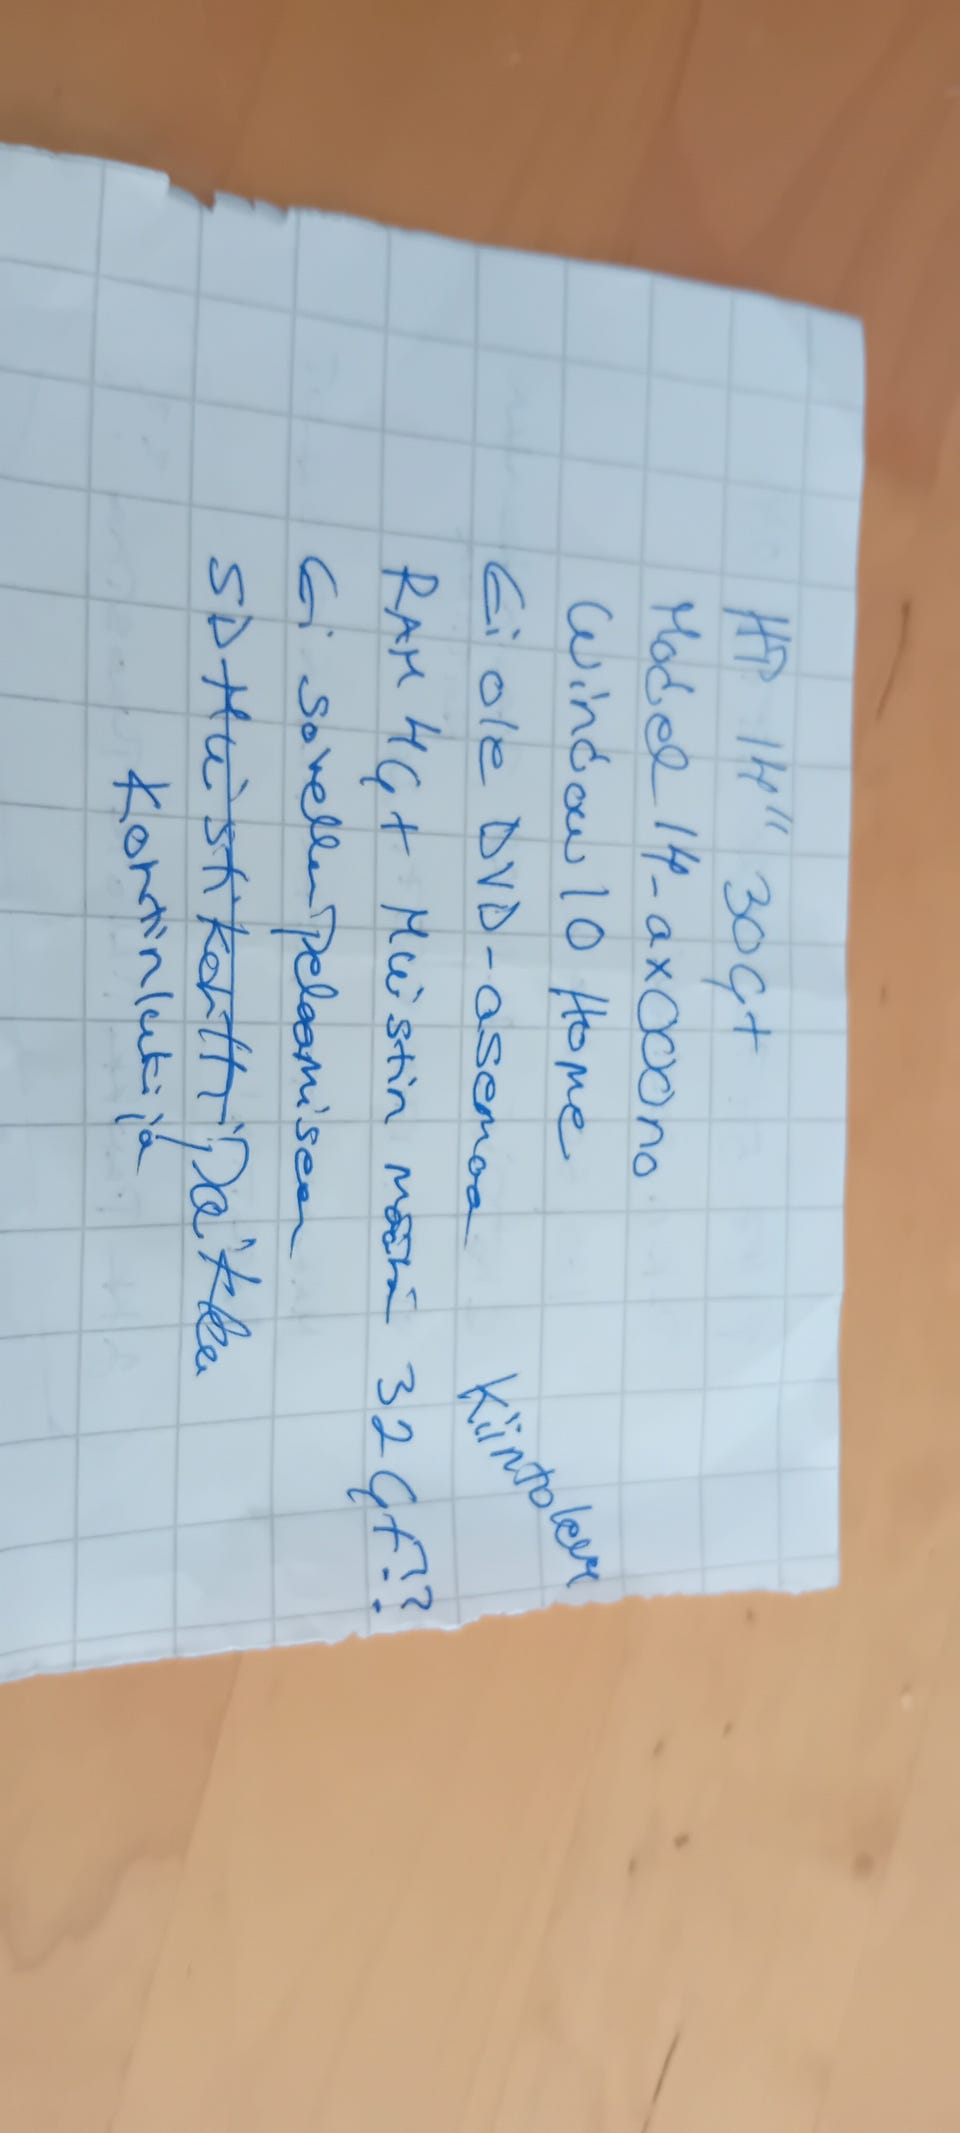 HP 14" 30Gt
Model 14-ax000no
Window 10 Home
Ei ole DVD-asemaa Kiintolevy
RAM 4Gt Muistin määrä 32 Gt??
Ei sovellu pelaamiseen
SD-Muistikortti paikka
Kortinlukija